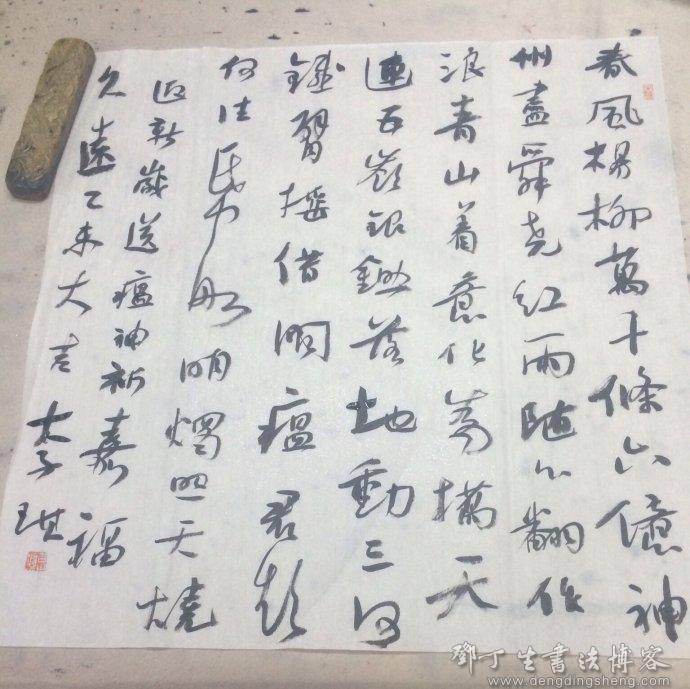 春風楊柳萬千條六億神
州盡舜堯紅雨隨心翻作
浪青山着意化為橋天
連五嶺銀鋤落地動三河
鐵臂搖借問瘟君欲
何往帋船明燭照天燒
迎新歲送瘟神祈嘉福
久遠乙未大吉 李琪
鄧丁生書法博客
www.dengdingsheng.com